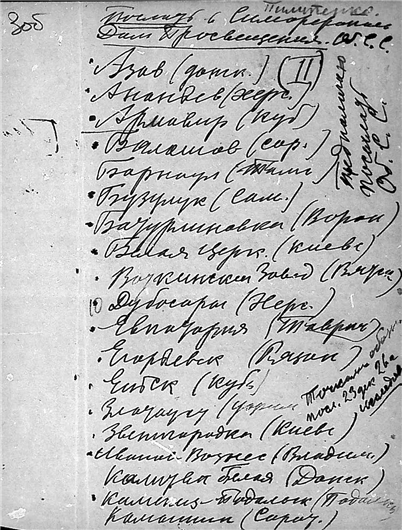 306
Послать в Симферополь
Дом Просвещения. О.С.С.
Азов (донск.) (II)
Ананьев (Херс.)
Армавир (Куб)
Балашов (Сар.)
Барнаул (Томс)
Бузулук (Сам.)
Бутурлиновка (Ворон)
Белая Церк. (Киевс)
Воткинский Завод (Вятск)
Дубосары (Херс.)
Евпатория (Таврич)
Егорьевск (Рязан)
Ейск (Куб)
Златоуст
Звенигородка (Киевс)
Иваново-Вознес (Владим.)
Калитва Белая (Донск)
Каменец-Подольск (Подольск)
Камышин (Сарат)
посылаю
О.С.С.
Точками обозн.
посл. 23 дек 26 г.